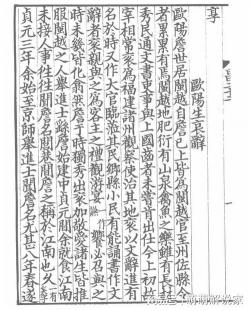 享
歐陽生哀辭
歐陽詹世居閩越自詹已上皆為閩越官至州佐縣令
者累累有焉閩越地肥衍有山泉禽魚之樂雖有長材
秀民通文書吏事與上國齒者未嘗肯出仕今上初故
宰相常袞為福建諸州觀察使治其地袞以文辭進有
名於時又作大官臨蒞其民鄉縣小民有能誦書作文
辭者袞親與之為客主之禮觀游宴饗必召與之
時未幾皆化翕然詹于時獨秀出袞加敬愛諸生皆推
服閩越之人舉進士繇詹始建中貞元間余就食江南
未接人事往往聞詹名閭巷間詹之稱於江南也久
貞元三年余始至京師舉進士聞詹名尤甚八年春遂